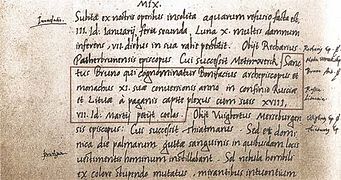 MIX.
Subita ex nostris operibus insolita aquarum refusio facta est
III. Id. Ianuarij, feria secunda Luna X. multis damnum
inferens, VII. diebus in sua valit permansit. Obijt Retharius
Patherbrunensis episcopus. Cui successit Meinwerck. Sanc
tus Bruno qui cognominatur Bonifacius archiepiscopus et
monachus XI. suæ conversionis anno in confinio Rusciæ
et Lituæ à paganis capite plexus cum suis XVIII,
VII. Id. Martij petijt coelos. Obijt Wigbertus Merseburgen
sis episcopus: Cui successit Thiatmarus. Sed et domi
nica die palmarum guttæ sanguinis in quibusdam locis
vestimentis hominum instillabant. Sed nebula horribilis
ex colore stupendo mutatus, mirantibus intuentium
Inundatio.
Russia
Lituania